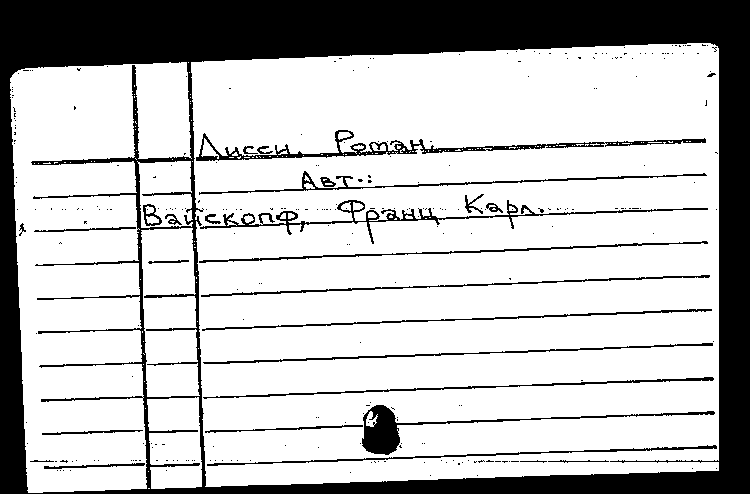 Лисси. Роман.
Авт.:
Вайскопф, Франц Карл.